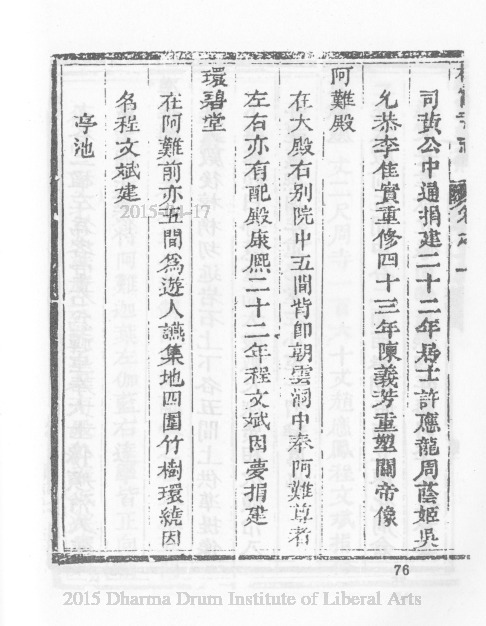 司黃公中通捐建二十二年居士許應龍周蔭姬吳
允恭李佳實重修四十三年陳義芳重塑關帝像
阿難殿
在大殿右別院中五間背卽朝雲洞中奉阿難尊者
左右亦有配殿康熙二十二年程文斌因夢捐建
環碧堂
在阿難前亦五間爲遊人讌集地四圍竹樹環繞因
名程文斌建
亭池
76
2015-04-17
2015 Dharma Drum Institute of Liberal Arts